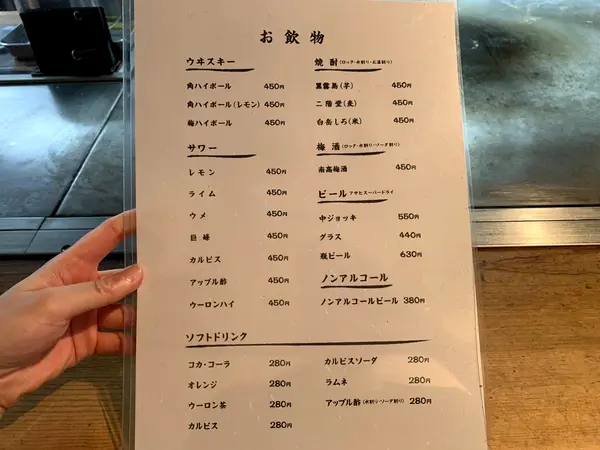 お飲物
ウヰスキー
角ハイボール 450円
角ハイボール(レモン) 450円
梅ハイボール 450円
サワー
レモン 450円
ライム 450円
ウメ 450円
巨峰 450円
カルピス 450円
アップル酢 450円
ウーロンハイ 450円
焼酎(ロック・水割り・お湯割り)
黒霧島(芋) 450円
二階堂(麦) 450円
白岳しろ(米) 450円
梅酒(ロック・水割り・ソーダ割り)
南高梅酒 450円
ビール アサヒスーパードライ
中ジョッキ 550円
グラス 440円
瓶ビール 630円
ノンアルコール
ノンアルコールビール 380円
ソフトドリンク
コカ・コーラ 280円
オレンジ 280円
ウーロン茶 280円
カルピス 280円
カルピスソーダ 280円
ラムネ 280円
アップル酢(水割り・ソーダ割り) 280円